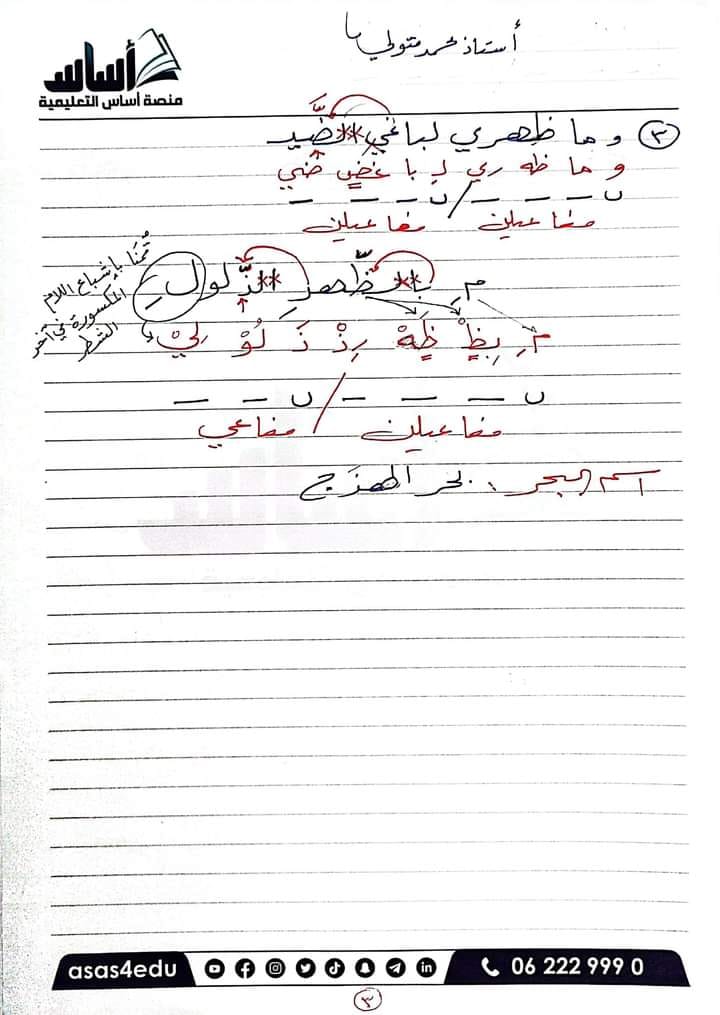 أستاذ محمد متولي
أساس
منصة أساس التعليمية
٣ وما ظهري لباغي ** الضَّيـ
و ما ظه ري لـ با غضْ ضي
ں – – – / ں – – –
مفاعيلن مفاعيلن
مِ با ** لظَّهرِ ** الذَّلولِ
مِ بِظْ ظَهْ رِذْ ذَ لُوْ لِيْ
ں – – – / ں – –
مفاعيلن / مفاعي
قُمنا بإشباع اللام
المكسورة في آخر
الشطر
اسم البحر: بحر الهزج
asas4edu
06 222 999 0
٣